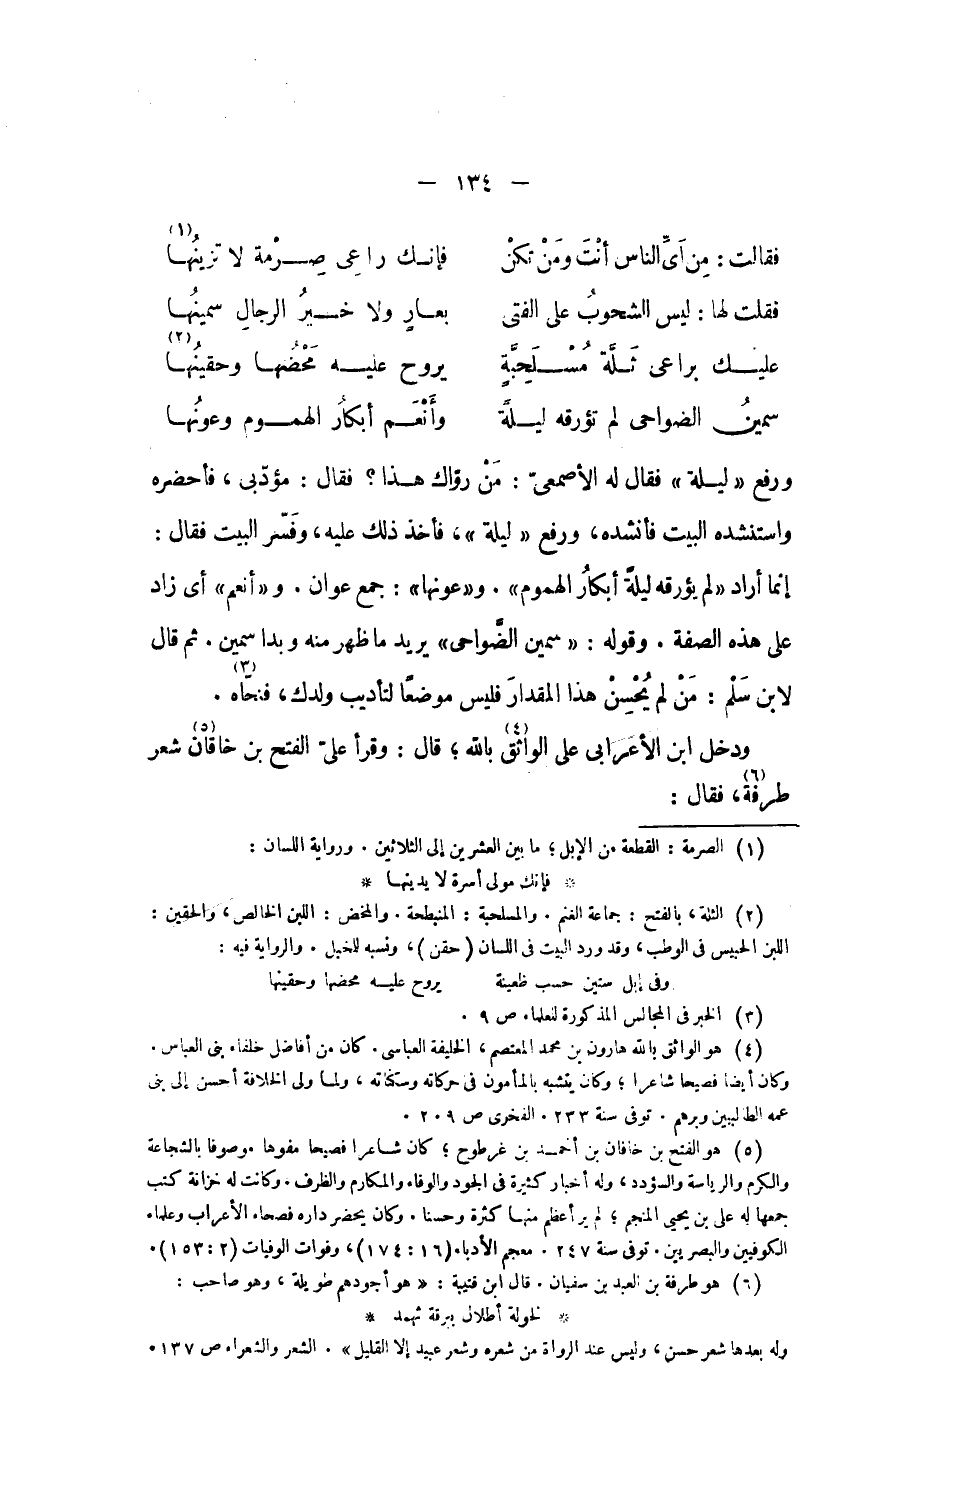 — ١٣٤ —
فقالت : مِن أىِّ الناس أنْتَ ومَنْ تكنْ فإنـك راعى صِـرْمة لا تزينُهـا (١)
فقلت لها : ليس الشحوبُ على الفتى بعـارٍ ولا خـيرُ الرجالِ سمينُهـا
عليـك براعى ثَـلَّة مُسْـلَحِبَّةٍ يروح عليـه مَحْضُهـا وحقينُهـا (٢)
سمينُ الضواحى لم تؤرقه ليـلةٌ وأنْعَـم أبكارُ الهمـوم وعونُهـا
ورفع « ليـلة » فقال له الأصمعىّ : مَنْ روّاك هـذا ؟ فقال : مؤدّبى ، فأحضره
واستنشده البيت فأنشده، ورفع « ليلة »، فأخذ ذلك عليه، وفَسّر البيت فقال :
إنما أراد «لم يؤرقه ليلةً أبكارُ الهموم» . و«عونها» : جمع عوان . و «أنعم» أى زاد
على هذه الصفة . وقوله : « سمين الضَّواحى» يريد ما ظهر منه وبدا سمين . ثم قال
لابن سَلْم : مَنْ لم يُحْسِنْ هذا المقدارَ فليس موضعًا لتأديب ولدك، فنحّاه (٣) .
ودخل ابن الأعرابى على الواثق (٤) بالله ؛ قال : وقرأ علىّ الفتح بن خاقان (٥) شعر
طرفة (٦)، فقال :
(١) الصرمة : القطعة من الإبل؛ ما بين العشرين إلى الثلاثين . ورواية اللسان :
* فإنك مولى أسرة لا يدينها *
(٢) الثلة، بالفتح : جماعة الغنم . والمسلحبة : المنبطحة . والمخض : اللبن الخالص، والحقين :
اللبن الحبيس فى الوطب، وقد ورد البيت فى اللسان (حقن)، ونسبه للخيل . والرواية فيه :
وفى إبل ستين حسب ظعينة يروح عليـه محضها وحقينها
(٣) الخبر فى المجالس المذكورة للعلماء ص ٩ .
(٤) هو الواثق بالله هارون بن محمد المعتصم، الخليفة العباسى. كان من أفاضل خلفاء بنى العباس .
وكان أيضا فصيحا شاعرا ؛ وكان يتشبه بالمأمون فى حركاته وسكناته ، ولما ولى الخلافة أحسن إلى بنى
عمه الطالبيين وبرهم . توفى سنة ٢٣٣ . الفخرى ص ٢٠٩ .
(٥) هو الفتح بن خاقان بن أحمـد بن غرطوح ؛ كان شـاعرا فصيحا مفوها موصوفا بالشجاعة
والكرم والرياسة والسؤدد ، وله أخبار كثيرة فى الجود والوفاء والمكارم والظرف . وكانت له خزانة كتب
جمعها له على بن يحيى المنجم ؛ لم ير أعظم منهـا كثرة وحسنا . وكان يحضر داره فصحاء الأعراب وعلماء
الكوفيين والبصريين . توفى سنة ٢٤٧ . معجم الأدباء (١٦ : ١٧٤)، وفوات الوفيات (٢ : ١٥٣).
(٦) هو طرفة بن العبد بن سفيان . قال ابن قتيبة : « هو أجودهم طويلة ، وهو صاحب :
* لخولة أطلال ببرقة ثهمد *
وله بعدها شعر حسن ، وليس عند الرواة من شعره وشعر عبيد إلا القليل» . الشعر والشعراء ص ١٣٧ .